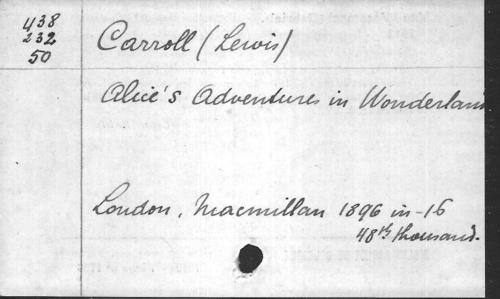 438
232
50
Carroll (Lewis)
Alice's Adventures in Wonderlan
London, Macmillan 1896 in-16
48th thousand.